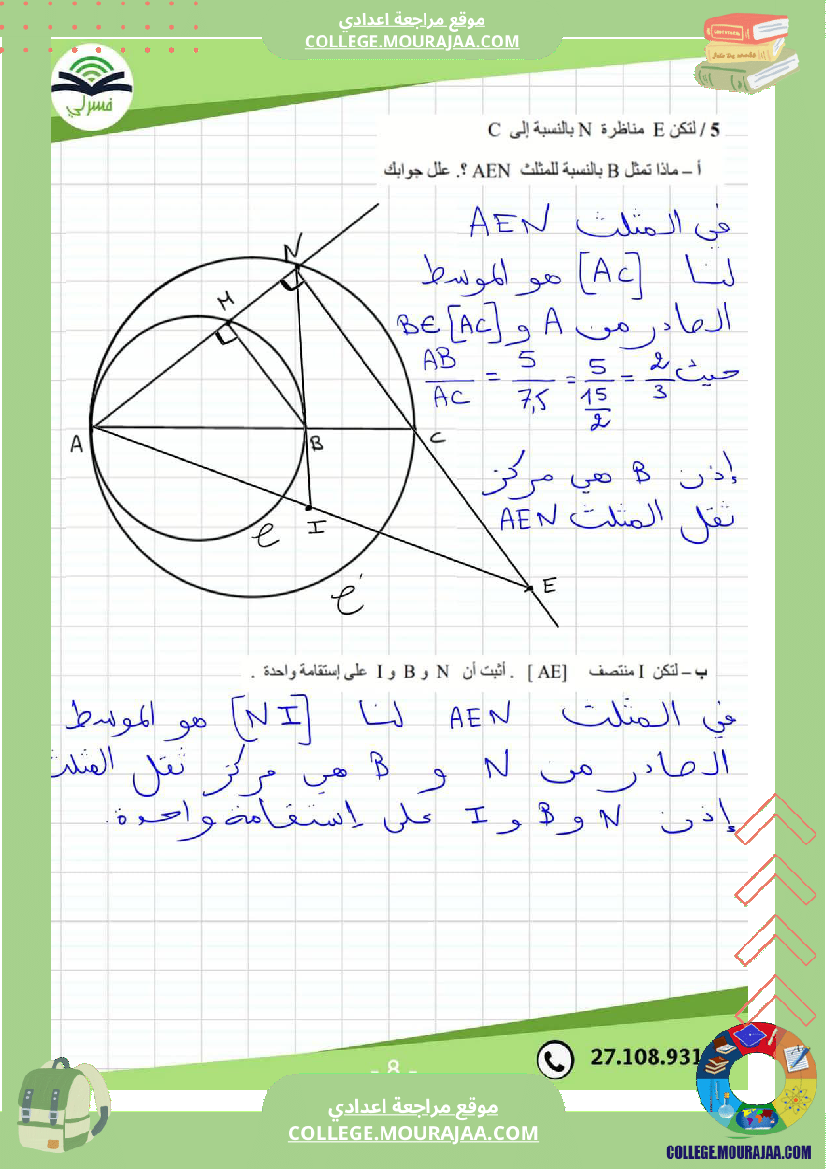 موقع مراجعة اعدادي
COLLEGE.MOURAJAA.COM
فسرلي
5 / لتكن E مناظرة N بالنسبة إلى C
أ – ماذا تمثل B بالنسبة للمثلث AEN ؟. علل جوابك
في المثلث AEN
لنا [AC] هو الموسط
الصادر من A و B∈[AC]
حيث AB/AC = 5/7,5 = 5/(15/2) = 2/3
إذن B هي مركز
ثقل المثلث AEN
N
M
A
B
C
I
E
𝒞
𝒞'
ب – لتكن I منتصف [AE] . أثبت أن N و B و I على إستقامة واحدة .
في المثلث AEN لنا [NI] هو الموسط
الصادر من N و B هي مركز ثقل المثلث
إذن N و B و I على إستقامة واحدة.
- 8 -
27.108.931
موقع مراجعة اعدادي
COLLEGE.MOURAJAA.COM
COLLEGE.MOURAJAA.COM